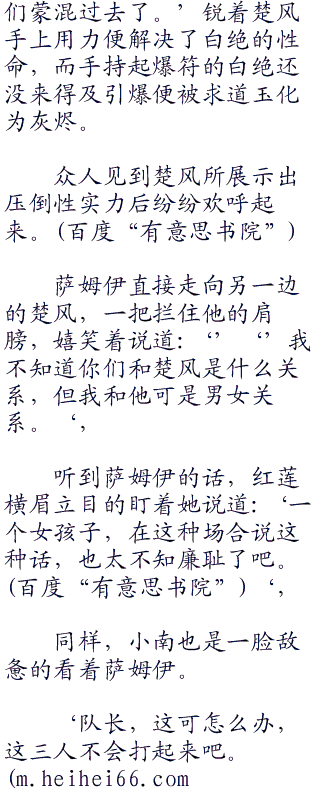 们蒙混过去了。’ 锐着楚风
手上用力便解决了白绝的性
命，而手持起爆符的白绝还
没来得及引爆便被求道玉化
为灰烬。
众人见到楚风所展示出
压倒性实力后纷纷欢呼起
来。(百度“有意思书院”)
萨姆伊直接走向另一边
的楚风，一把拦住他的肩
膀，嬉笑着说道：‘’ ‘’ 我
不知道你们和楚风是什么关
系，但我和他可是男女关
系。‘，
听到萨姆伊的话，红莲
横眉立目的盯着她说道：‘一
个女孩子，在这种场合说这
种话，也太不知廉耻了吧。
(百度“有意思书院”) ‘，
同样，小南也是一脸敌
惫的看着萨姆伊。
‘队长，这可怎么办，
这三人不会打起来吧。
(m.heihei66.com